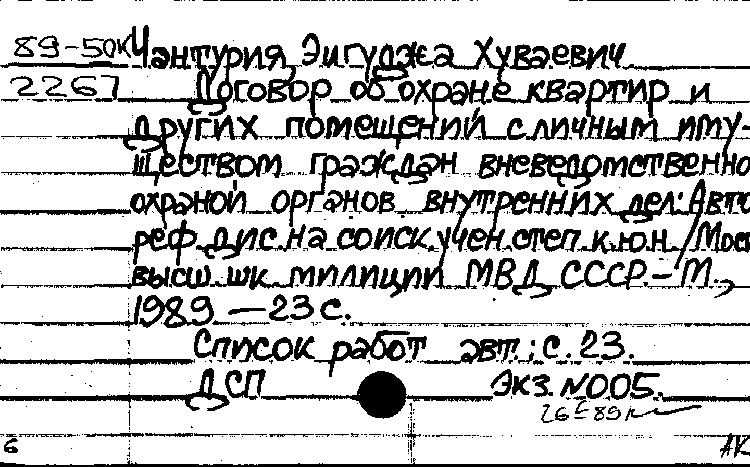 89-50к Чантурия, Энгуджа Хуваевич
2267 Договор об охране квартир и
других помещений с личным иму-
ществом граждан вневедомственно
охраной органов внутренних дел: Авто
реф. дис. на соиск. учен. степ. к.ю.н. / Моск
высш. шк. милиции МВД СССР. – М.,
1989 – 23 с.
Список работ авт.: с. 23.
ДСП Экз. N005.
6 АК